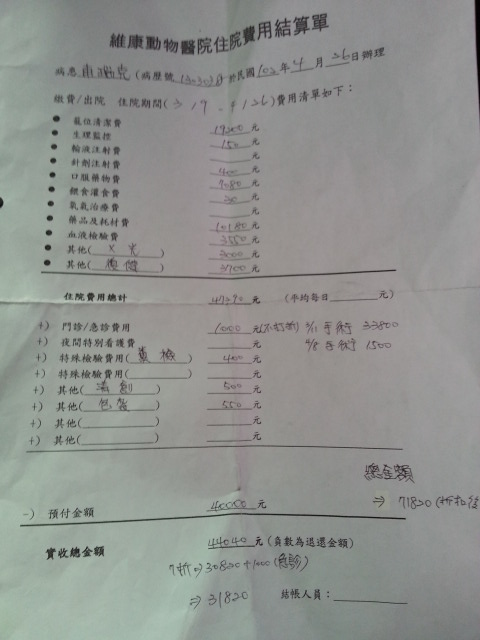 維康動物醫院住院費用結算單
病患 (病歷號 130303) 於民國 102 年 4 月 26 日辦理
繳費/出院 住院期間(3/19 - 4/26)費用清單如下:
● 籠位清潔費 19200 元
● 生理監控 150 元
● 輸液注射費 元
● 針劑注射費 400 元
● 口服藥物費 7080 元
● 餵食灌食費 30 元
● 氧氣治療費 元
● 藥品及耗材費 10180 元
● 血液檢驗費 3550 元
● 其他( X光 ) 3000 元
● 其他( 復健 ) 3700 元
住院費用總計 47290 元 (平均每日 元)
+) 門診/急診費用 1000 元(不打折) 手術 33800
+) 夜間特別看護費 元 4/8 手術 1500
+) 特殊檢驗費用( 糞檢 ) 400 元
+) 特殊檢驗費用( ) 元
+) 其他( 清創 ) 500 元
+) 其他( 包紮 ) 550 元
+) 其他( ) 元
+) 其他( ) 元
總金額
⇒ 71820 (折扣後
-) 預付金額 40000 元
實收總金額 44040 元 (負數為退還金額)
7折 ⇒ 30820 + 1000 (急診)
⇒ 31820 結帳人員: